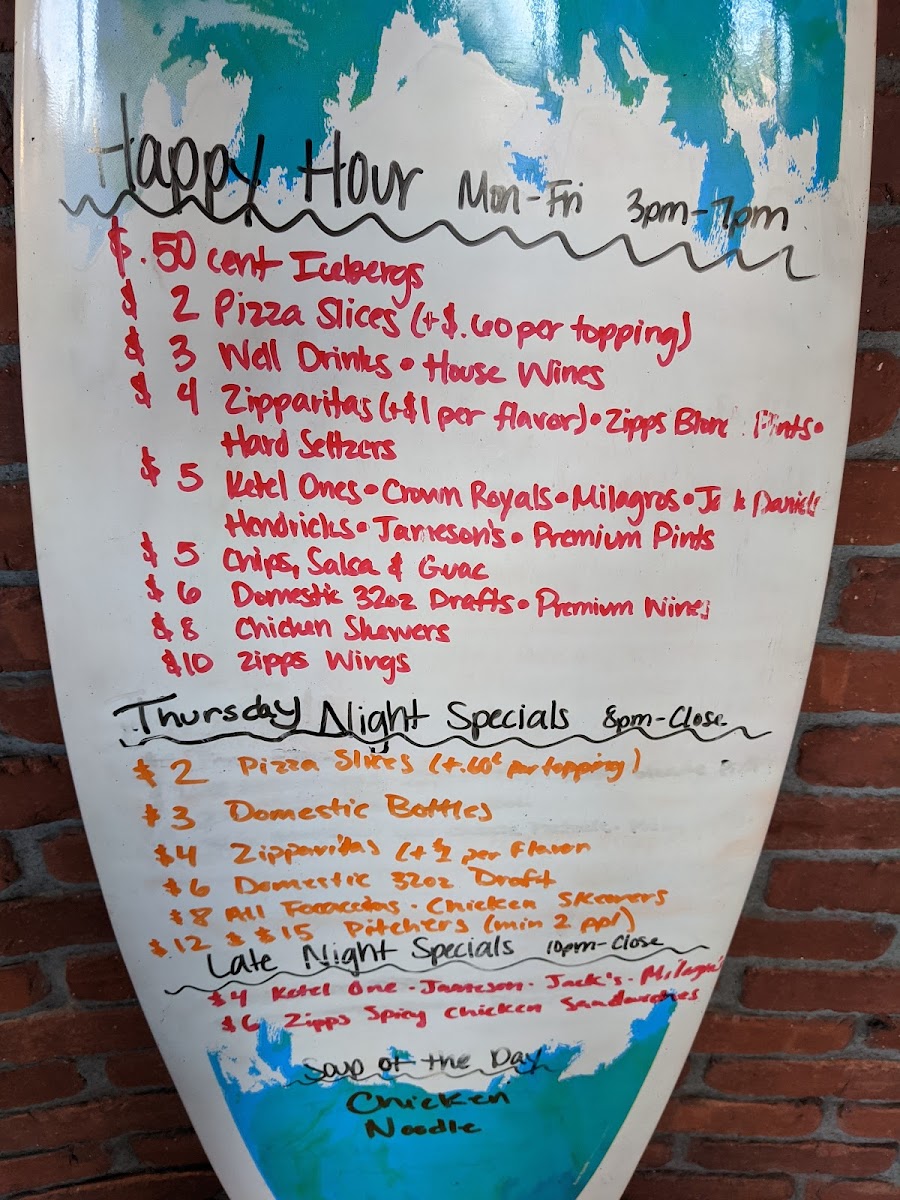 Happy Hour Mon-Fri 3pm-7pm
$.50 cent Icebergs
$ 2 Pizza Slices (+$.60 per topping)
$ 3 Well Drinks • House Wines
$ 4 Zipparitas (+$1 per flavor) • Zipps Blond Pints •
Hard Seltzers
$ 5 Ketel Ones • Crown Royals • Milagros • Jack Daniels
Hendricks • Jameson's • Premium Pints
$ 5 Chips, Salsa & Guac
$ 6 Domestic 32oz Drafts • Premium Wines
$ 8 Chicken Skewers
$10 Zipps Wings
Thursday Night Specials 8pm-Close
$ 2 Pizza Slices (+.60¢ per topping)
$ 3 Domestic Bottles
$4 Zipparitas (+$1 per flavor
$6 Domestic 32oz Draft
$8 All Foccaccias · Chicken Skewers
$12 & $15 Pitchers (min 2 ppl)
Late Night Specials 10pm-Close
$4 Ketel One · Jameson · Jack's · Milagro's
$6 Zipps Spicy Chicken Sandwiches
Soup of the Day
Chicken
Noodle